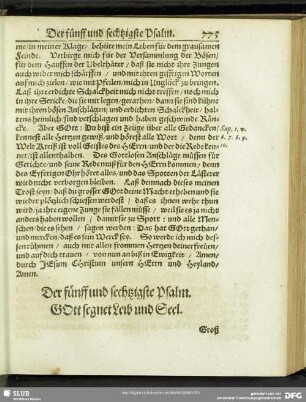 Der fünff und sechtzigste Psalm. 775
me / in meiner Klage / behüte mein Leben für dem grausamen
Feinde. Verbirge mich für der Versammlung der Bösen /
für dem Hauffen der Ubelthäter / daß sie nicht ihre Zungen
auch wider mich schärffen / und mit ihren gifftigen Worten
auf mich zielen / wie mit Pfeilen / mich in Unglück zu bringen.
Laß ihre erdichte Schalckheit mich nicht treffen / noch mich
in ihre Stricke / die sie mir legen / gerathen: dann sie sind kühne
mit ihren bösen Anschlägen / und erdichten Schalckheit / hal-
tens heimlich / sind verschlagen und haben geschwinde Rän-
cke. Aber GOtt: Du bist ein Zeuge über alle Gedancken / Sap. 1. v.
kennest alle Hertzen gewiß / und hörest alle Wort / denn der 6. 7. 8. 9.
Welt Kreiß ist voll Geistes des HErrn / und der die Rede ken- 10.
net / ist allenthalben. Des Gottlosen Anschläge müssen für
Gerichte / und seine Rede muß für den HErrn kommen / denn
des Eyferigen Ohr höret alles / und das Spotten der Lästerer
wird nicht verborgen bleiben. Laß demnach dieses meinen
Trost seyn / daß du grosser GOtt deine Macht erheben und sie
wieder plötzlich schiessen werdest / daß es ihnen wehe thun
wird / ja ihre eigene Zunge sie fällen müsse / weil sie es ja nicht
anders haben wollen / damit sie zu Spott / und alle Men-
schen / die es sehen / sagen werden: Das hat GOtt gethan /
und mercken / daß es sein Werck sey. So werde ich mich des-
sen rühmen / auch mit allen frommen Hertzen deiner freuen /
und auf dich trauen / von nun an biß in Ewigkeit / Amen /
durch JEsum Christum unsern HErrn und Heyland /
Amen.
Der fünff und sechtzigste Psalm.
GOtt segnet Leib und Seel.
Groß
SLUB
DFG